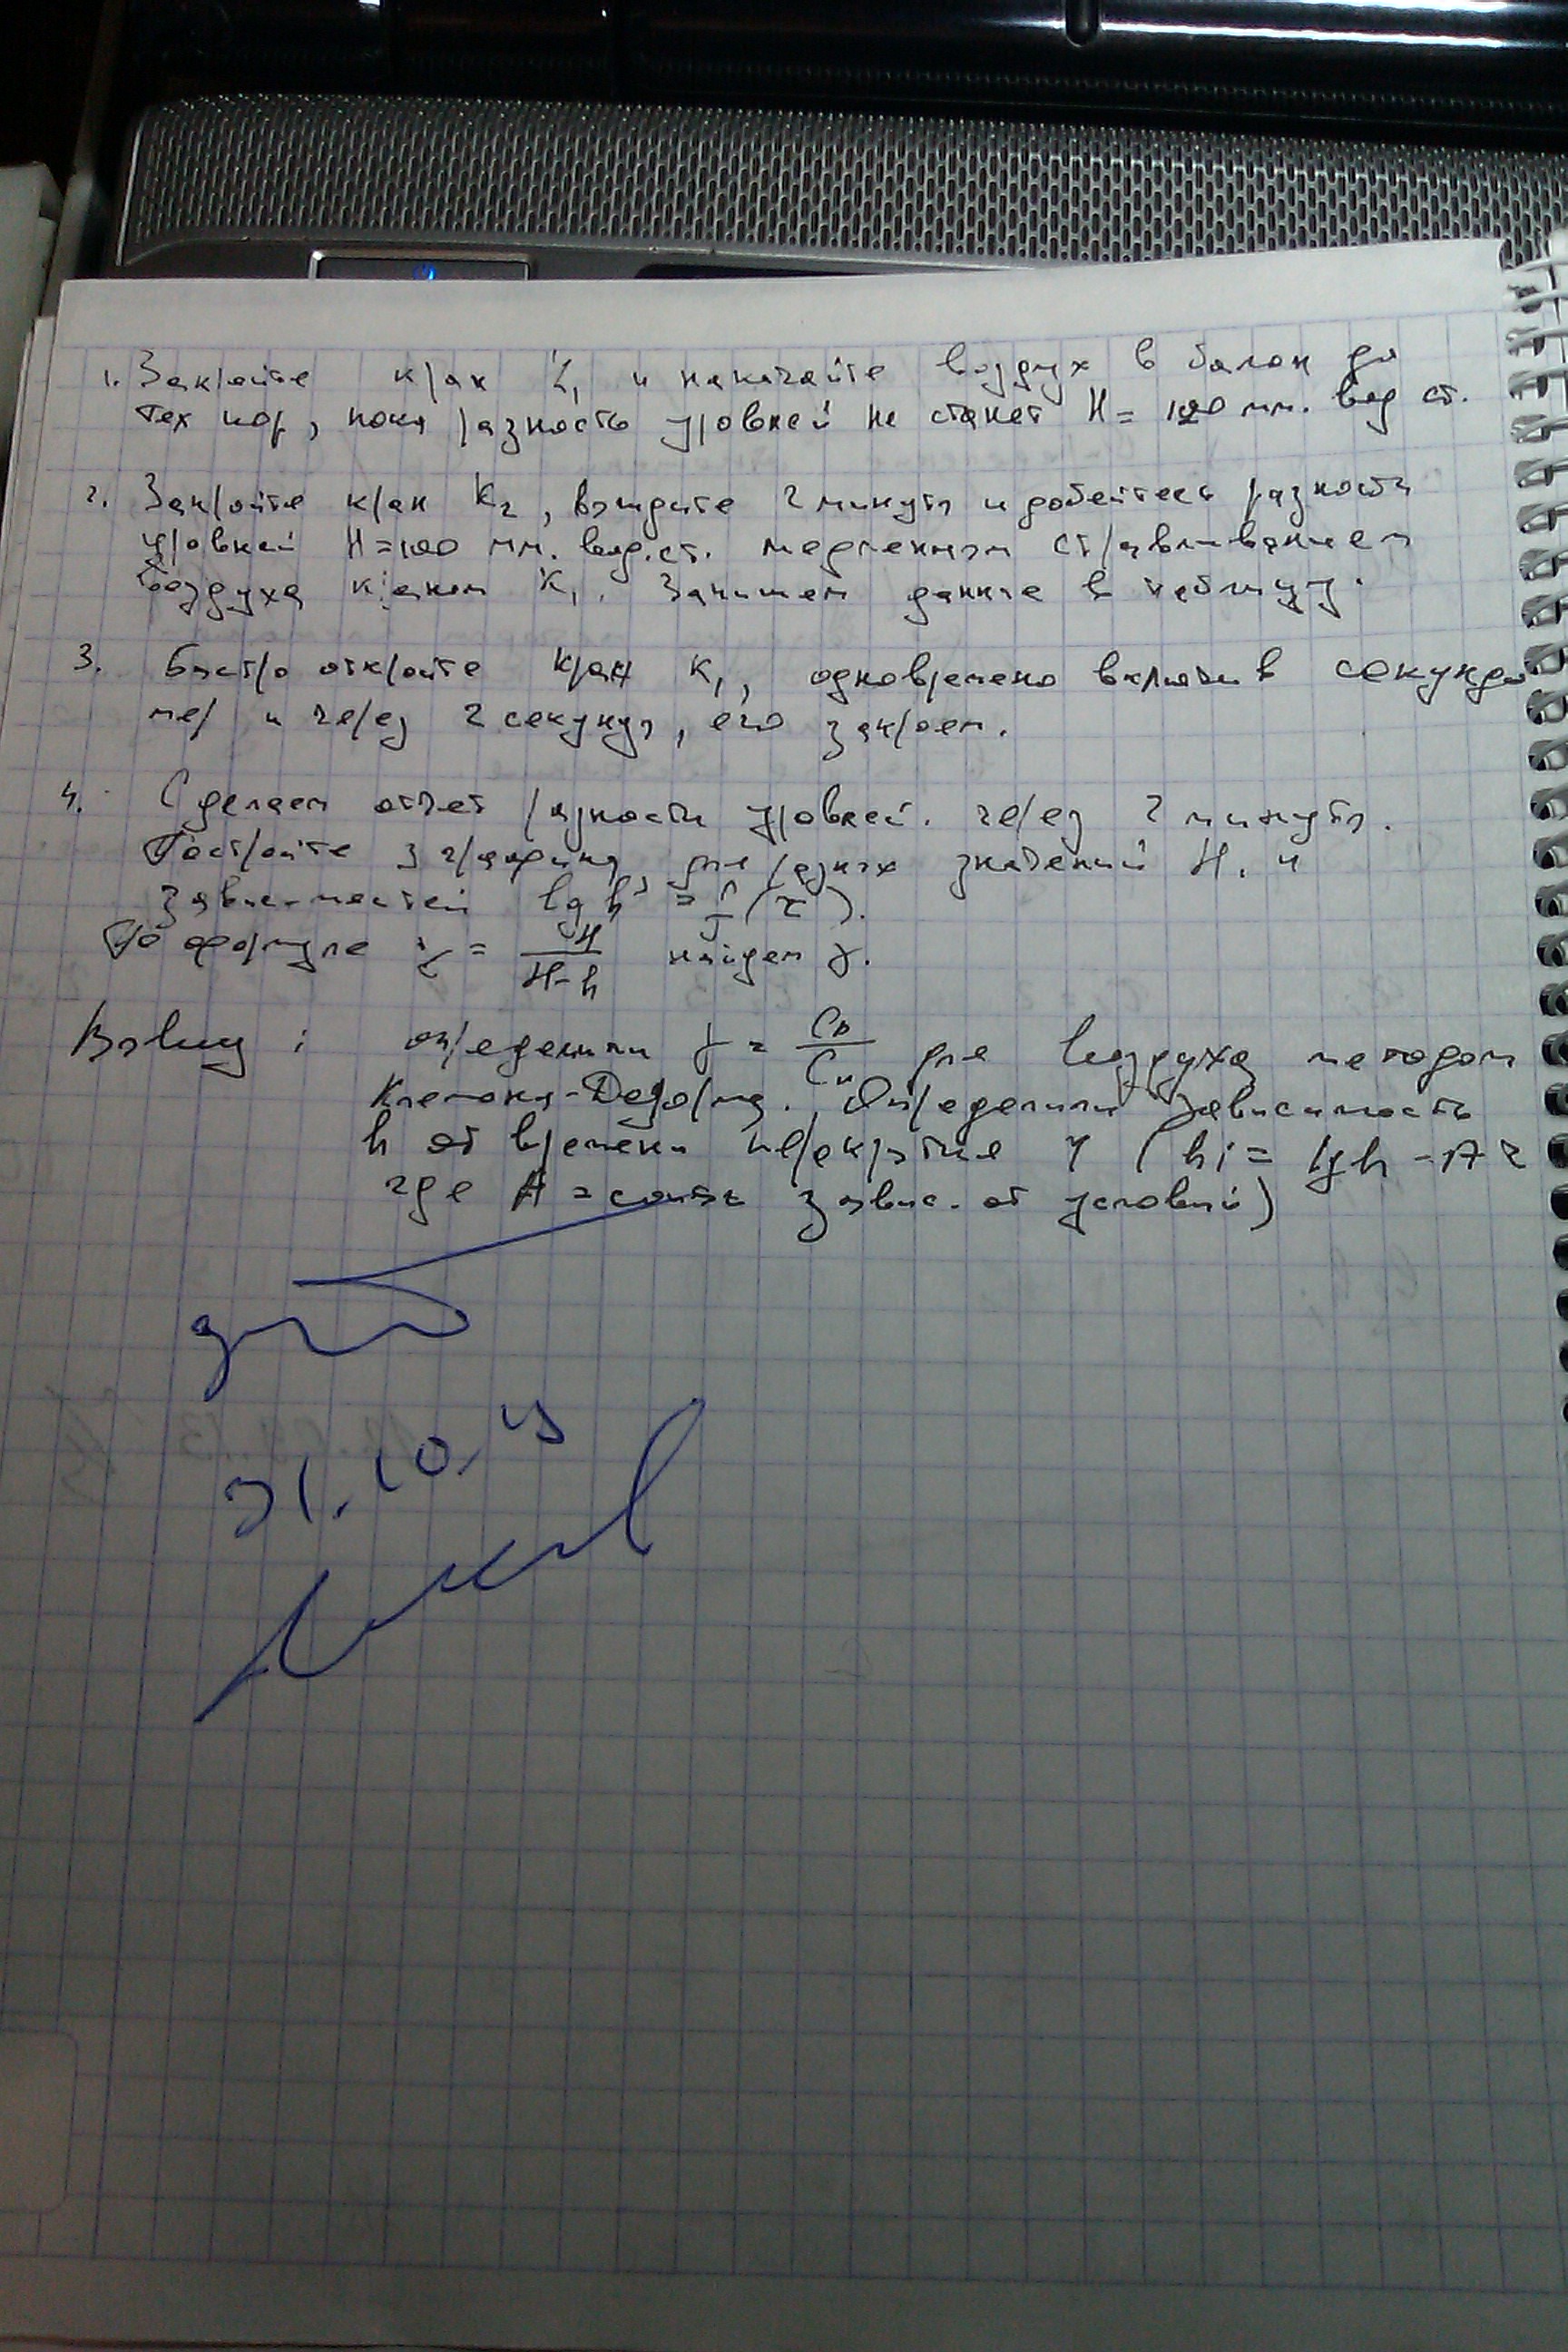 1. Закройте кран K₁ и накачайте воздух в балон до
тех пор, пока разность уровней не станет H = 120 мм. вод ст.
2. Закройте кран K₂, выждите 2 минуты и добейтесь разности
уровней H = 100 мм. вод. ст. медленным стравливанием
воздуха краном K₁. Запишем данные в таблицу.
3. Быстро откройте кран K₁, одновремено включив секундо
мер и через 2 секунды, его закроем.
4. Сделаем отчет разности уровней. через 2 минуты.
Постройте 3 графика, для разных значений H, и
зависимостей lg h' = f(τ).
По формуле γ = H/(H-h) найдем γ.
Вывод: определили γ = Cp/Cv для воздуха методом
Клемана-Дезорма. Определили зависимость
h от времени перекрытия (hi = lg h - Aτ
где A = const завис. от условий)
31.10.13